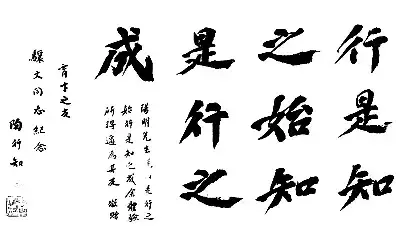 行是知
之始知
是行之
成
陽明先生 知是行之
始行是知之成余體驗
所得適為其反
育才之友
文同志紀念
陶行知